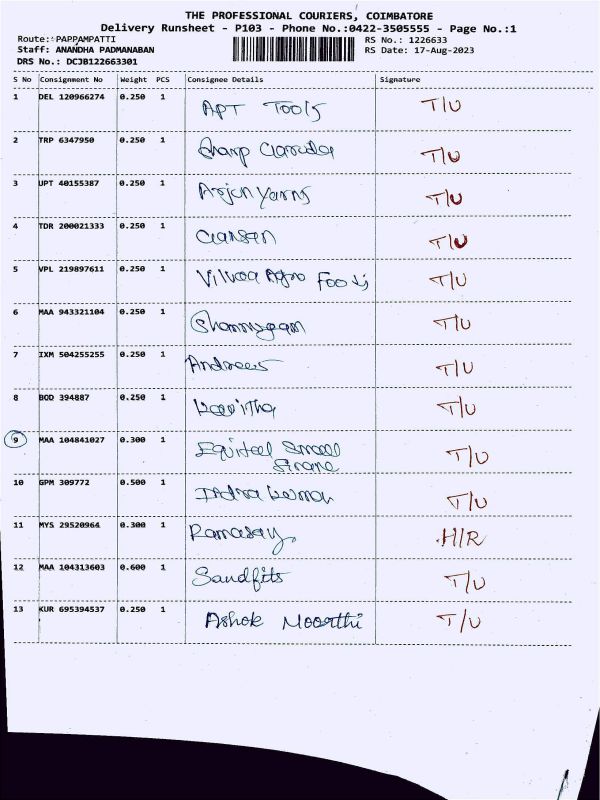 THE PROFESSIONAL COURIERS, COIMBATORE
Delivery Runsheet - P103 - Phone No.:0422-3505555 - Page No.:1
Route::PAPPAMPATTI RS No.: 1226633
Staff: ANANDHA PADMANABAN RS Date: 17-Aug-2023
DRS No.: DCJB122663301
S No Consignment No Weight PCS Consignee Details Signature
1 DEL 120966274 0.250 1 APT Tools T/U
2 TRP 6347950 0.250 1 Sharp T/U
3 UPT 40155387 0.250 1 Arjun Yarns T/U
4 TDR 200021333 0.250 1 T/U
5 VPL 219897611 0.250 1 Vilvaa Agro Foods T/U
6 MAA 943321104 0.250 1 Shanmugam T/U
7 IXM 504255255 0.250 1 Andrews T/U
8 BOD 394887 0.250 1 Kavitha T/U
9 MAA 104841027 0.300 1 Small T/U
10 GPM 309772 0.500 1 Indra Kumar T/U
11 MYS 29520964 0.300 1 H/R
12 MAA 104313603 0.600 1 Sandfits T/U
13 KUR 695394537 0.250 1 Ashok Moorthi T/U